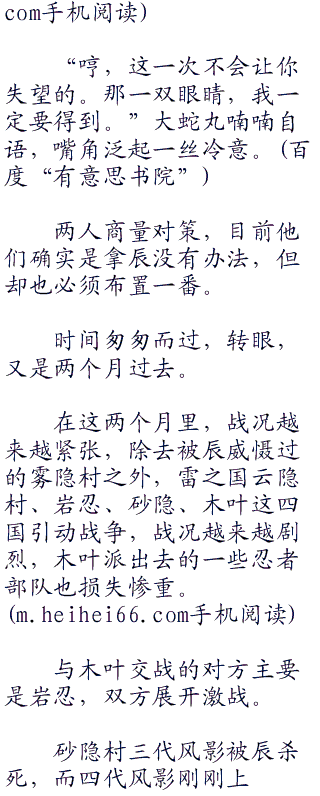 com手机阅读)
“哼，这一次不会让你
失望的。那一双眼睛，我一
定要得到。”大蛇丸喃喃自
语，嘴角泛起一丝冷意。(百
度“有意思书院”)
两人商量对策，目前他
们确实是拿辰没有办法，但
却也必须布置一番。
时间匆匆而过，转眼，
又是两个月过去。
在这两个月里，战况越
来越紧张，除去被辰威慑过
的雾隐村之外，雷之国云隐
村、岩忍、砂隐、木叶这四
国引动战争，战况越来越剧
烈，木叶派出去的一些忍者
部队也损失惨重。
(m.heihei66.com手机阅读)
与木叶交战的对方主要
是岩忍，双方展开激战。
砂隐村三代风影被辰杀
死，而四代风影刚刚上